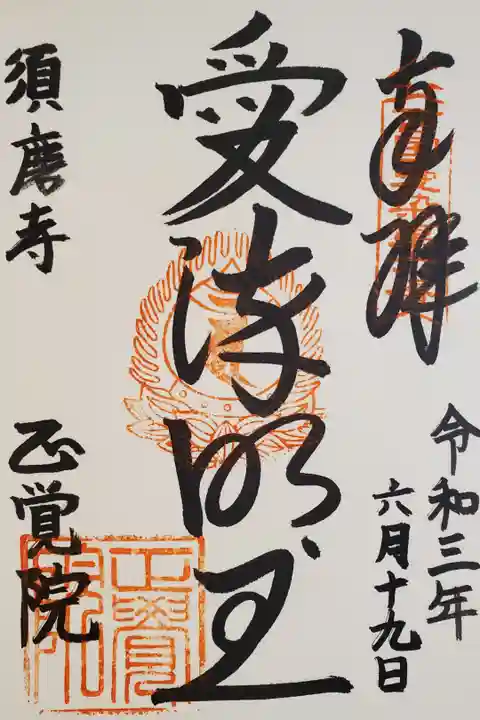 奉拝
令和三年
六月十九日
愛染明王
須磨寺
正覚院
正覺